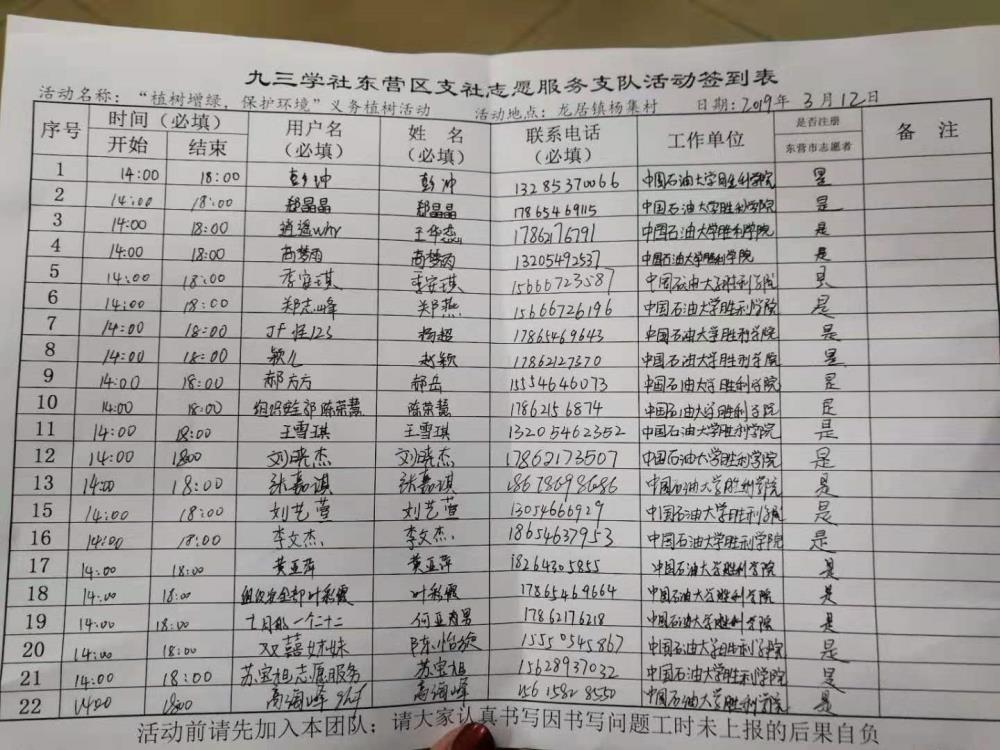 九三学社东营区支社志愿服务支队活动签到表
活动名称：“植树增绿，保护环境”义务植树活动 活动地点：龙居镇杨集村 日期：2019年 3月12日
序号 时间（必填） 用户名（必填） 姓 名（必填） 联系电话（必填） 工作单位 是否注册东营市志愿者 备 注
开始 结束
1 14:00 18:00 彭冲 彭冲 13285370066 中国石油大学胜利学院 是
2 14:00 18:00 郄晶晶 郄晶晶 17865469115 中国石油大学胜利学院 是
3 14:00 18:00 逍遥why 王华杰 1786276791 中国石油大学胜利学院 是
4 14:00 18:00 商梦雨 商梦雨 13205492537 中国石油大学胜利学院 是
5 14:00 18:00 李安琪 李安琪 15666723587 中国石油大学胜利学院 是
6 14:00 18:00 郑志峰 郑燕 15666726196 中国石油大学胜利学院 是
7 14:00 18:00 JF怪123 杨超 17865469643 中国石油大学胜利学院 是
8 14:00 18:00 颖儿 赵颖 17862127370 中国石油大学胜利学院 是
9 14:00 18:00 郝方方 郝岳 15554646073 中国石油大学胜利学院 是
10 14:00 18:00 组织安全部陈荣慧 陈荣慧 17862156874 中国石油大学胜利学院 是
11 14:00 18:00 王雪琪 王雪琪 13205462352 中国石油大学胜利学院 是
12 14:00 18:00 刘晓杰 刘晓杰 17862173507 中国石油大学胜利学院 是
13 14:00 18:00 张嘉淇 张嘉淇 18678698686 中国石油大学胜利学院 是
15 14:00 18:00 刘艺萱 刘艺萱 13054666929 中国石油大学胜利学院 是
16 14:00 18:00 李文杰 李文杰 18654637953 中国石油大学胜利学院 是
17 14:00 18:00 黄亚萍 黄亚萍 18264305855 中国石油大学胜利学院 是
18 14:00 18:00 组织安全部叶彩霞 叶彩霞 17865469664 中国石油大学胜利学院 是
19 14:00 18:00 七月那一个二十二 何亚男 17862176218 中国石油大学胜利学院 是
20 14:00 18:00 双囍妹妹 陈怡璇 15550545867 中国石油大学胜利学院 是
21 14:00 18:00 苏宝祖志愿服务 苏宝祖 15628937032 中国石油大学胜利学院 是
22 14:00 18:00 高海峰 高海峰 15615828550 中国石油大学胜利学院 是
活动前请先加入本团队；请大家认真书写因书写问题工时未上报的后果自负